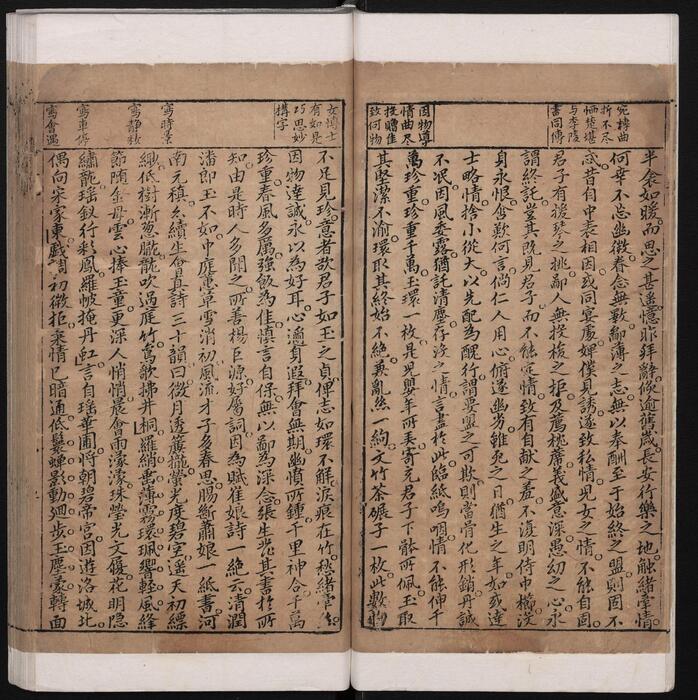 宛轉曲
折不尽
恓楚堪
与李陵
書同傳
因物導
情曲尽
投贈隹
致何物
半衾如暖而思之甚遥憶昨拜辞倏逾舊歲長安行樂之地触緒牽情
何幸不忘幽微眷念無斁鄙薄之志無以奉酬至于始終之盟則固不
忒昔自中表相因或同宴處婢僕見誘遂致私情児女之情不能自固
君子有援琴之挑鄙人無投梭之拒及薦枕蓆義盛意深愚幼之心永
謂終託豈其既見君子而不能定情致有自献之羞不復明侍巾櫛没
身永恨含歎何言倘仁人用心俯遂幽劣雖死之日猶生之年如或達
士略情捨小從大以先配為醜行謂要盟之可欺則當骨化形銷丹誠
不泯因風委露猶託清塵存没之情言盡於此臨紙嗚咽情不能伸千
萬珍重珍重千萬玉環一枚是児嬰年所弄寄充君子下骵所佩玉取
其堅潔不渝環取其終始不絶兼亂絲一絇文竹茶碾子一枚此數物
女博士
有如是
巧思妙
搆字
寫時景
寫靜秋
寫車傍
寫會遇
不足見珍意者欲君子如玉之貞俾志如環不解淚痕在竹愁緒縈絲
因物達誠永以為好耳心邇身遐拜會無期幽憤所鍾千里神合千萬
珍重春風多厲強飯為佳慎言自保無以鄙為深念張生発其書於所
知由是時人多聞之所善楊巨源好屬詞因為賦崔娘詩一絶云清潤
潘郎玉不如中庭蕙草雪消初風流才子多春思腸斷蕭娘一紙書河
南元稹亦續生會真詩三十韻曰微月透簾櫳螢光度碧空遥天初縹
緲低樹漸葱朧龍吹過庭竹鸞歌拂井桐羅綃垂薄霧環珮響軽風絳
節隨金母雲心捧玉童更深人悄悄晨會雨濛濛珠瑩光文履花明隱
繡龍瑶釵行彩鳳羅帔掩丹虹言自瑶華圃將朝碧帝宮因遊洛城北
偶向宋家東戲調初微拒柔情已暗通低鬟蟬影動廻步玉塵蒙轉面